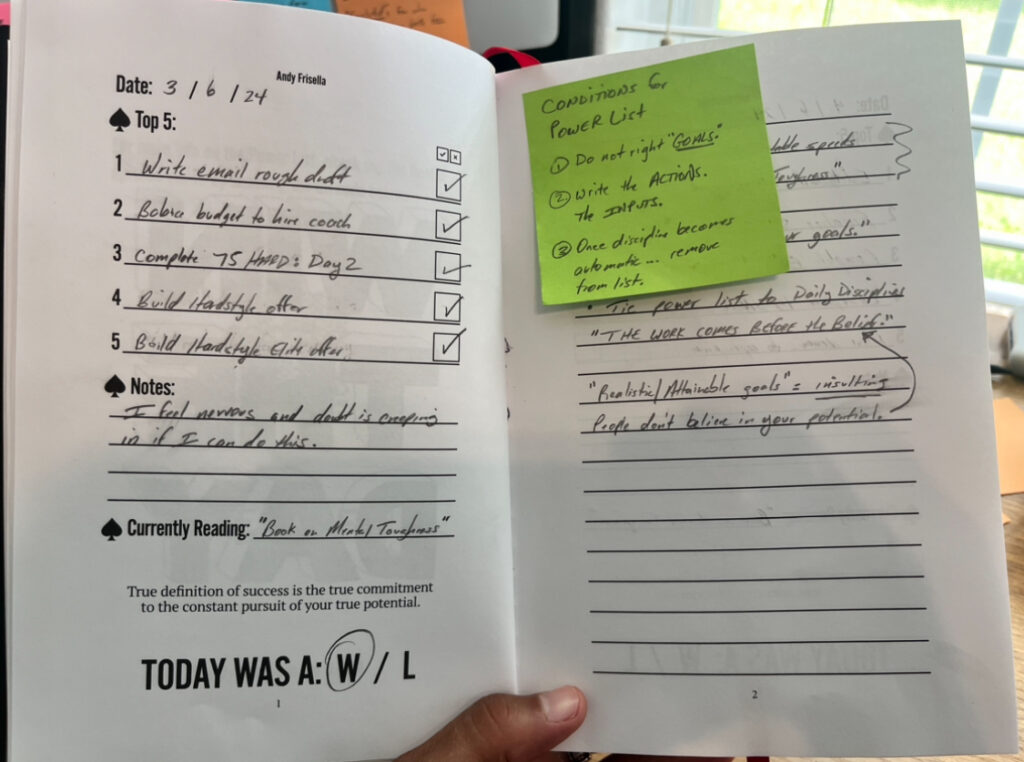 Andy Frisella
Date: 3 / 6 / 24
Top 5:
1 Write email rough draft
2 Balance budget to hire coach
3 Complete 75 HARD: Day 2
4 Build Hardstyle offer
5 Build Hardstyle Elite offer
Notes:
I feel nervous and doubt is creeping
in if I can do this.
Currently Reading: "Book on Mental Toughness"
True definition of success is the true commitment
to the constant pursuit of your true potential.
TODAY WAS A: W / L
1
CONDITIONS for
POWER LIST
① Do not right "GOALS."
② Write the ACTIONS.
The INPUTS.
③ Once discipline becomes
automatic... remove
from list.
speeds
Toughness"
goals."
• Tie power list to Daily Disciplines
"THE WORK COMES BEFORE the Belief."
"Realistic/Attainable goals" = insulting
People don't believe in your potential.
2